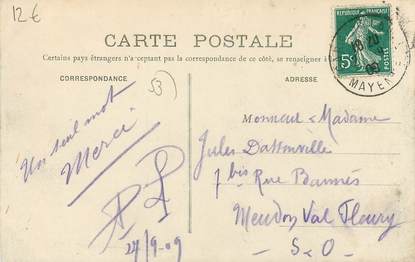 12€
CARTE POSTALE
Certains pays étrangers n'acceptant pas la correspondance de ce côté, se renseigner à
CORRESPONDANCE
53
ADRESSE
RÉPUBLIQUE FRANÇAISE
5c
POSTES
MAYENNE
Un seul mot
Merci
24/9-09
Monsieur & Madame
Jules Dattonville
7 bis Rue Bannès
Meudon Val Fleury
S-O-